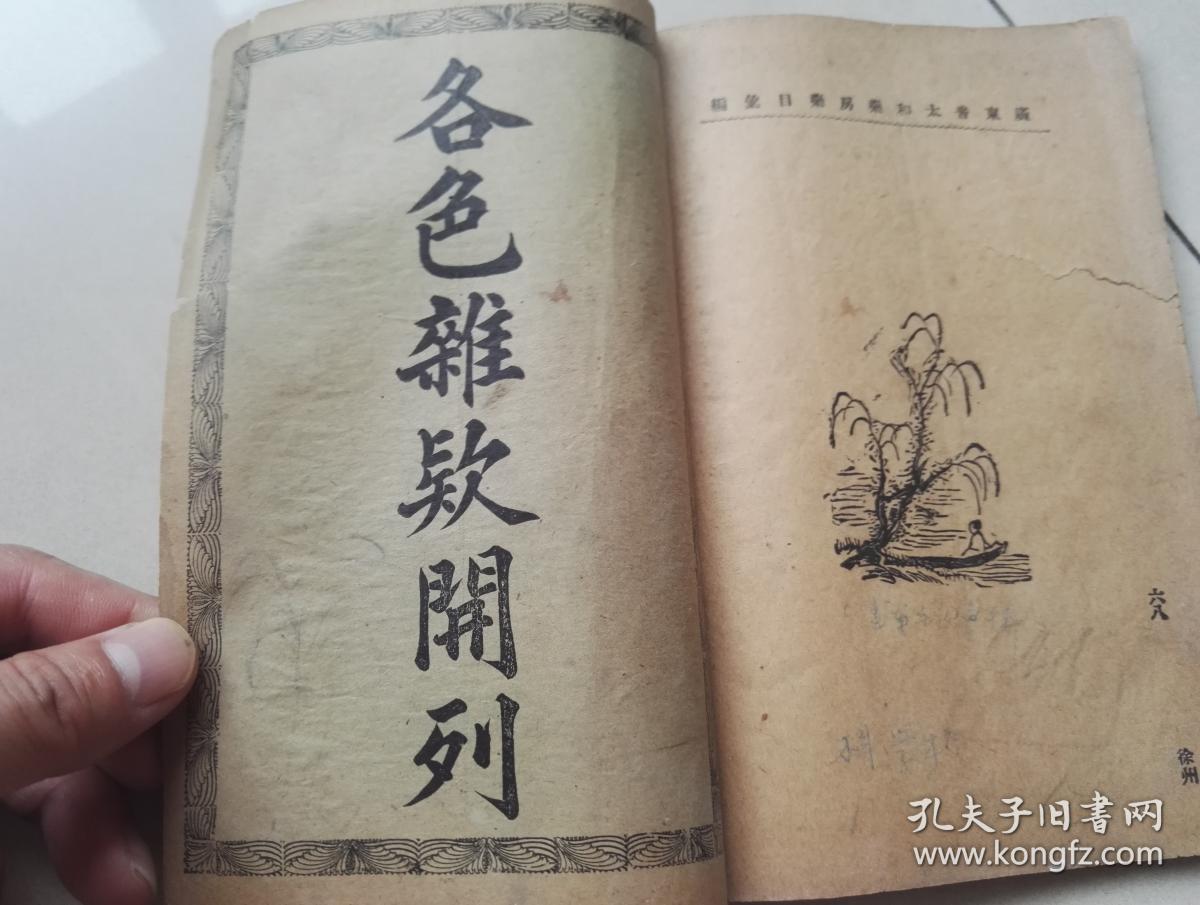 各色雜欵開列
廣東普太和藥房藥目彙編
六八
徐州
孔夫子旧书网
www.kongfz.com